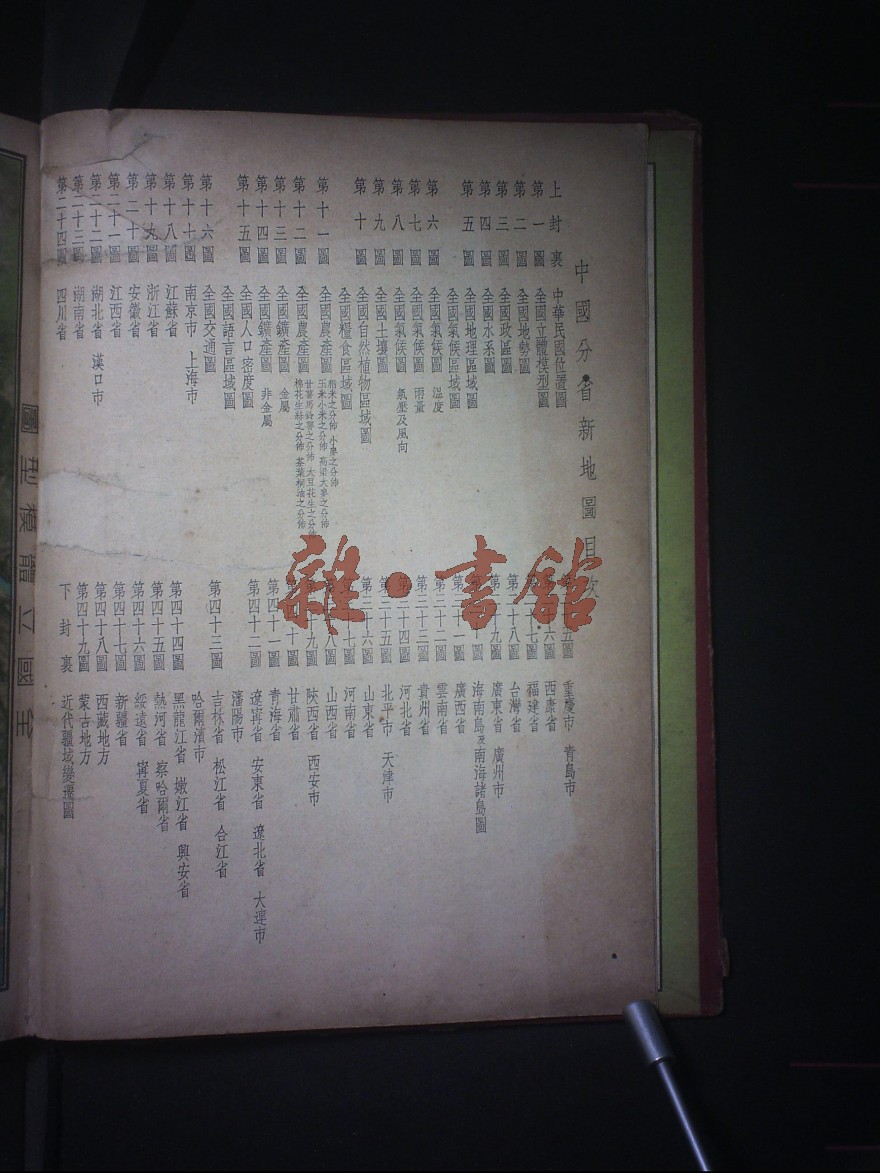 中國分省新地圖目次
上封裏 中華民國位置圖
第一圖 全國立體模型圖
第二圖 全國地勢圖
第三圖 全國政區圖
第四圖 全國水系圖
第五圖 全國地理區域圖
全國氣候區域圖
第六圖 全國氣候圖 溫度
第七圖 全國氣候圖 雨量
第八圖 全國氣候圖 氣壓及風向
第九圖 全國土壤圖
第十圖 全國自然植物區域圖
全國糧食區域圖
第十一圖 全國農產圖 稻米之分佈 小麥之分佈
玉米小米之分佈 高粱大麥之分佈
第十二圖 全國農產圖 甘薯馬鈴薯之分佈 大豆花生之分佈
棉花生絲之分佈 茶葉桐油之分佈
第十三圖 全國鑛產圖 金屬
第十四圖 全國鑛產圖 非金屬
第十五圖 全國人口密度圖
全國語言區域圖
第十六圖 全國交通圖
第十七圖 南京市 上海市
第十八圖 江蘇省
第十九圖 浙江省
第二十圖 安徽省
第二十一圖 江西省
第二十二圖 湖北省 漢口市
第二十三圖 湖南省
第二十四圖 四川省
第二十五圖 重慶市 青島市
第二十六圖 西康省
第二十七圖 福建省
第二十八圖 台灣省
第二十九圖 廣東省 廣州市
第三十圖 海南島及南海諸島圖
第三十一圖 廣西省
第三十二圖 雲南省
第三十三圖 貴州省
第三十四圖 河北省
第三十五圖 北平市 天津市
第三十六圖 山東省
第三十七圖 河南省
第三十八圖 山西省
第三十九圖 陝西省 西安市
第四十圖 甘肅省
第四十一圖 青海省
第四十二圖 遼寧省 安東省 遼北省 大連市
瀋陽市
第四十三圖 吉林省 松江省 合江省
哈爾濱市
第四十四圖 黑龍江省 嫩江省 興安省
第四十五圖 熱河省 察哈爾省
第四十六圖 綏遠省 寧夏省
第四十七圖 新疆省
第四十八圖 西藏地方
第四十九圖 蒙古地方
下封裏 近代疆域變遷圖
全國立體模型圖
雜·書館